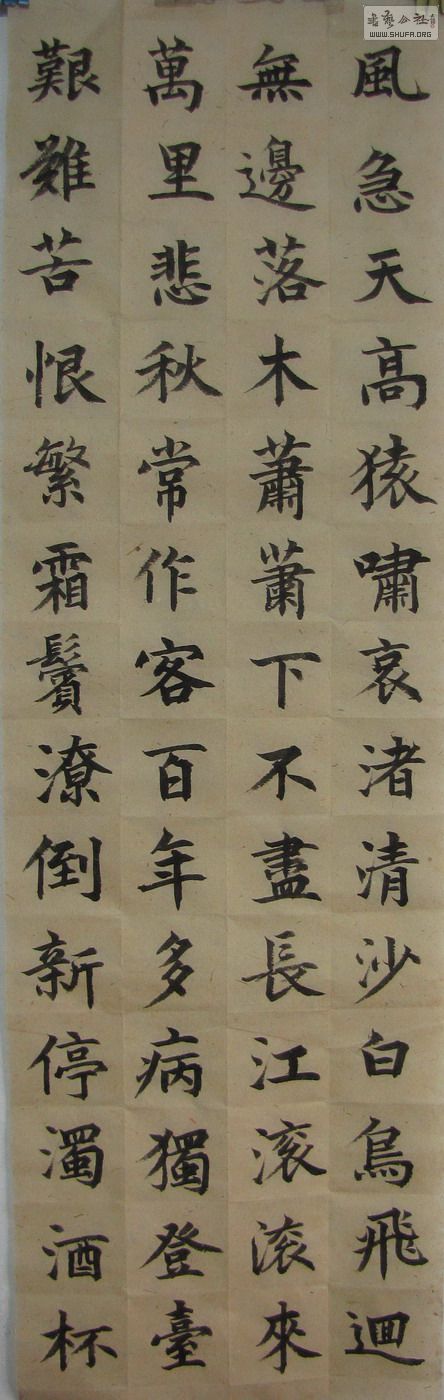 風急天高猿嘯哀渚清沙白鳥飛迴
無邊落木蕭蕭下不盡長江滾滾來
萬里悲秋常作客百年多病獨登臺
艱難苦恨繁霜鬢潦倒新停濁酒杯
書藝公社
WWW.SHUFA.ORG